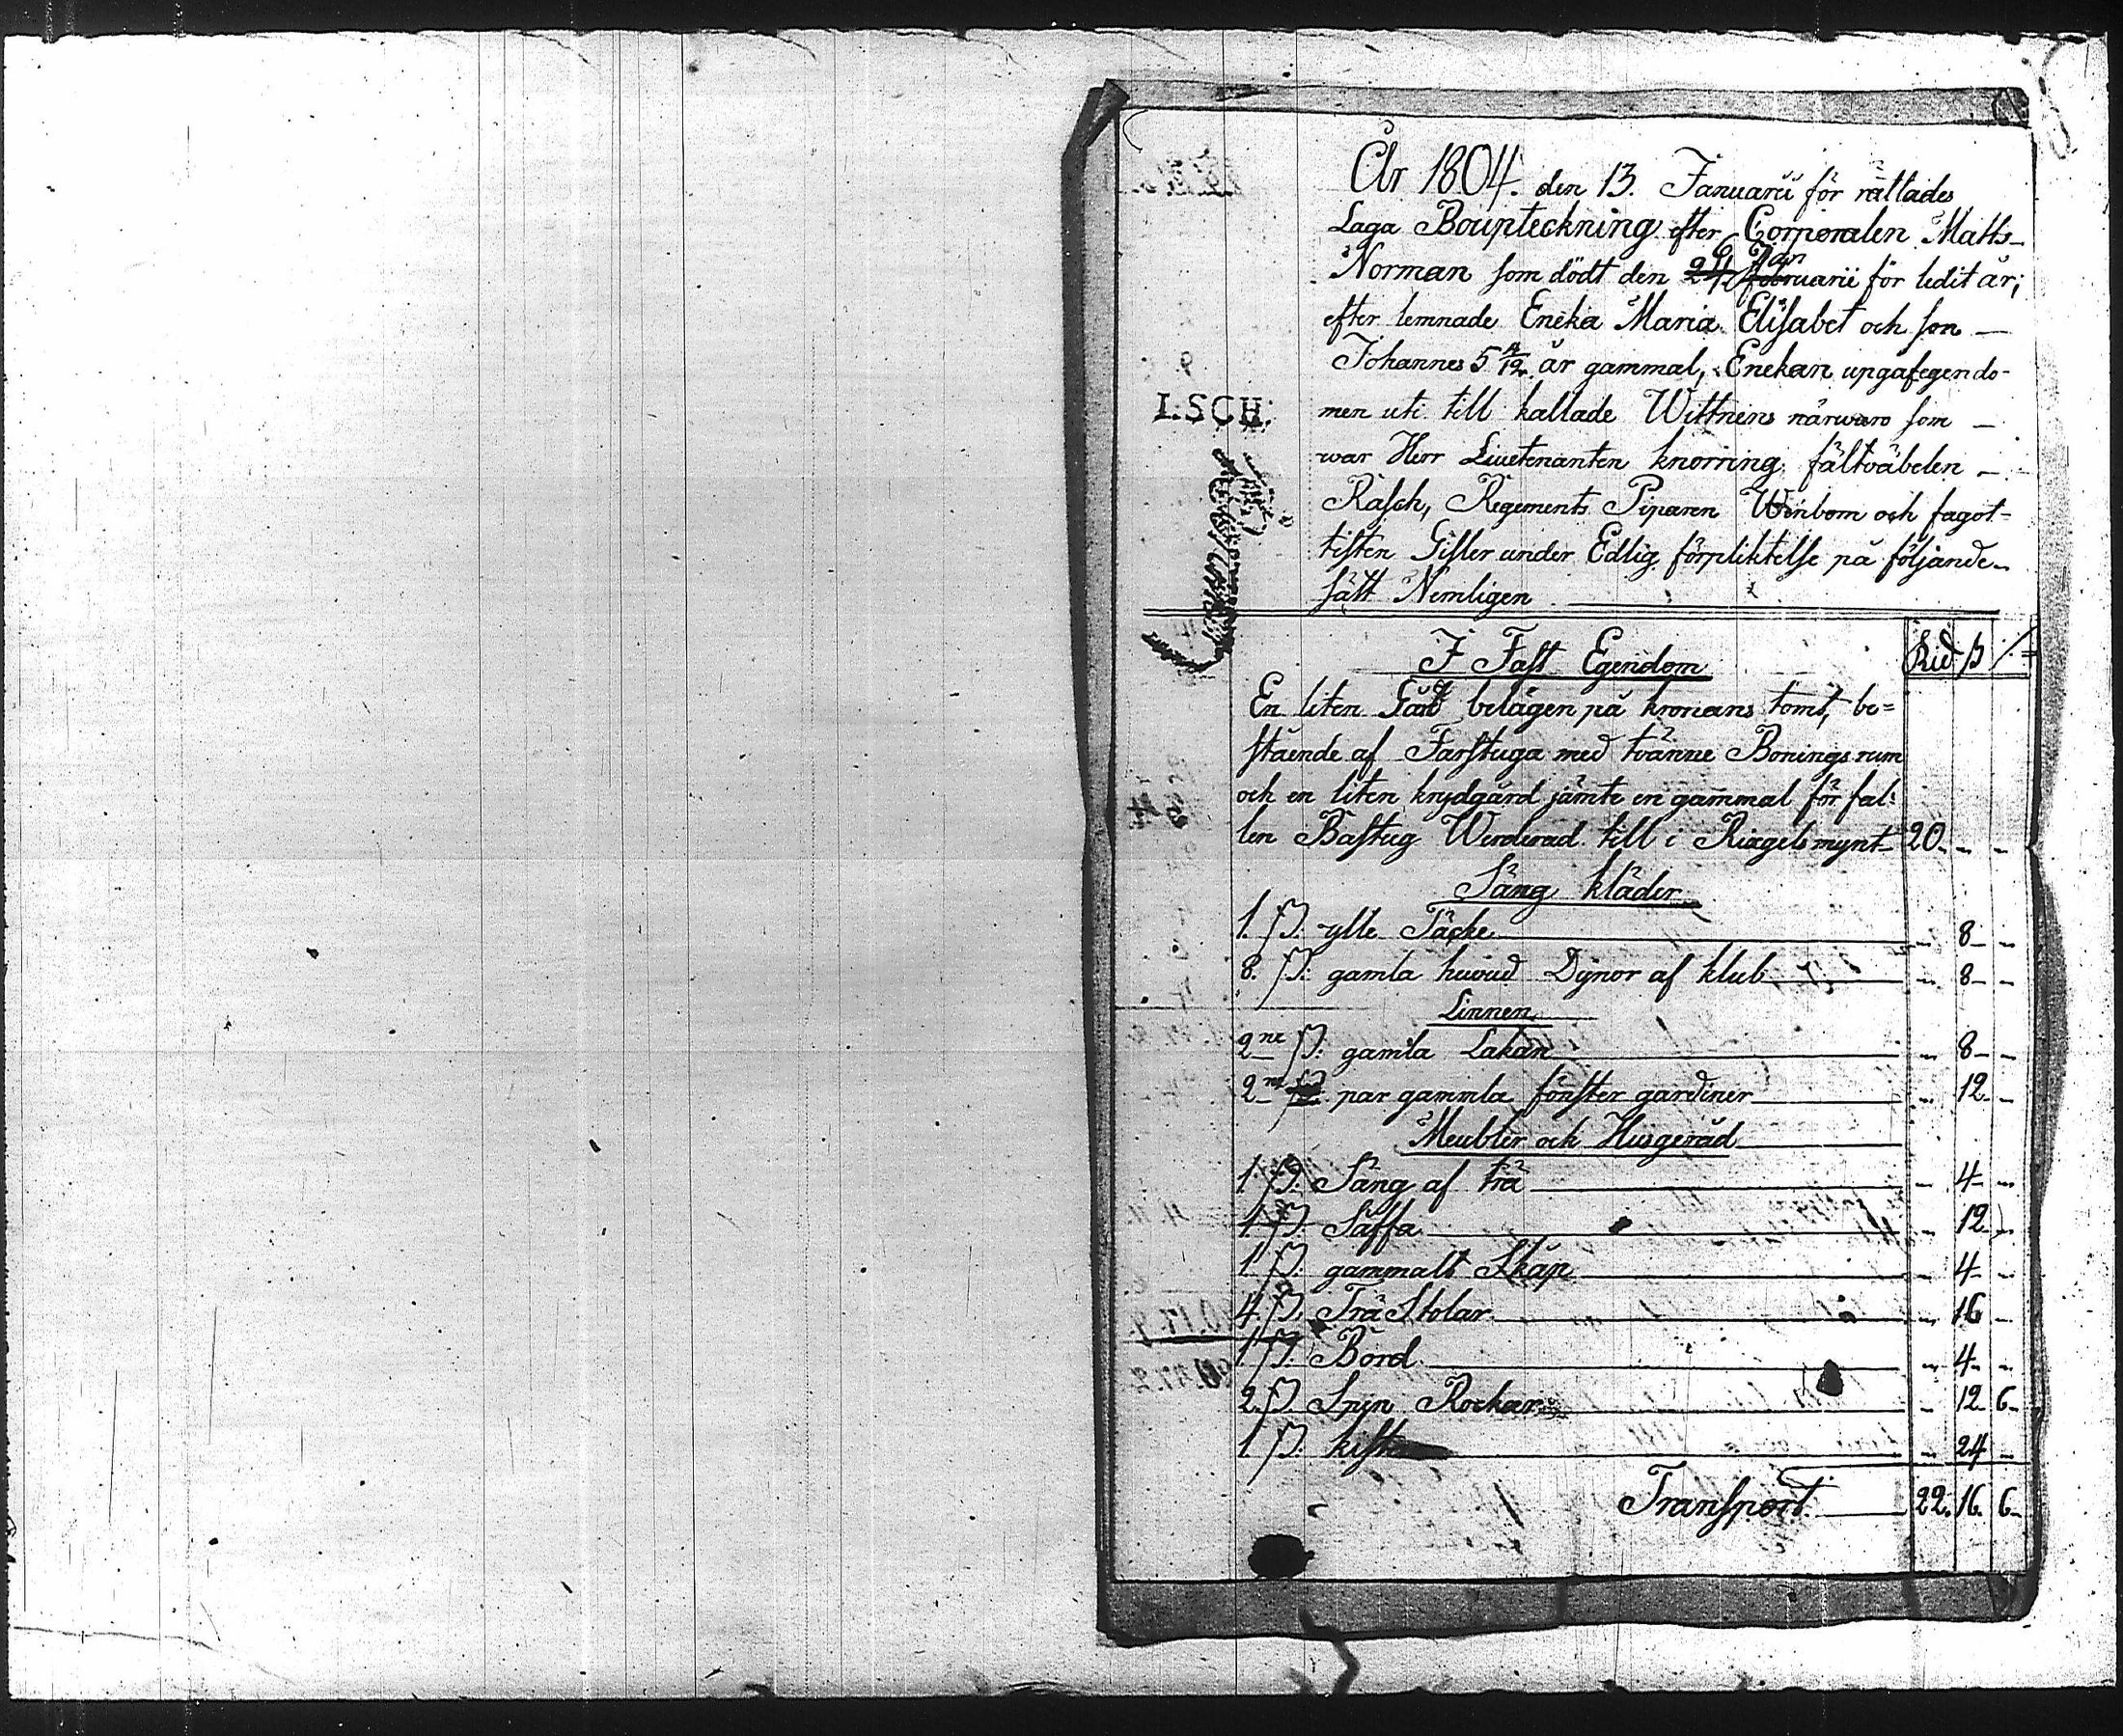 År 1804. den 13. Januarii för rättades
Laga Boupteckning efter Corporalen Matts
Norman som dödt den 24 6 februarii Jan för ledit år;
efter lemnade Encka Maria Elisabet och son
Johannes 5 4/12 år gammal, Enckan upgaf egendo-
I:SCH:
men uti till kallade Wittnens närwaro som
war Herr Liuetenanten knorring fältväbelen
Rasch, Regements Piparen Winbom och fagot-
tisten Gisler under Edlig förpliktelse på följande
sätt Nemligen
I Fast Egendom
Rid ß /
En liten Gård belägen på kronans tomt, be=
stående af Farstuga med tvänne Bonings rum
och en liten krydgård jämte en gammal för fal:
len Bastug Werderad till i Rixgels mynt 20 - -
Säng kläder
1. P. ylle Täcke - 8 -
8. P: gamla huvud Dynor af klub - 8 -
Linnen
2ne P: gamla Lakan - 8 -
2ne par gammla fönster gardiner - 12 -
Meubler och Husgeråd
1. P. Säng af trä - 4 -
1. P. Säffa - 12 -
1. P. gammalt Skåp - 4 -
4. P. Trä Stolar - 16 -
1. P. Bord - 4 -
2. P. Spin Rockar - 12 6
1. P. kist - 24 -
Transport 22. 16. 6